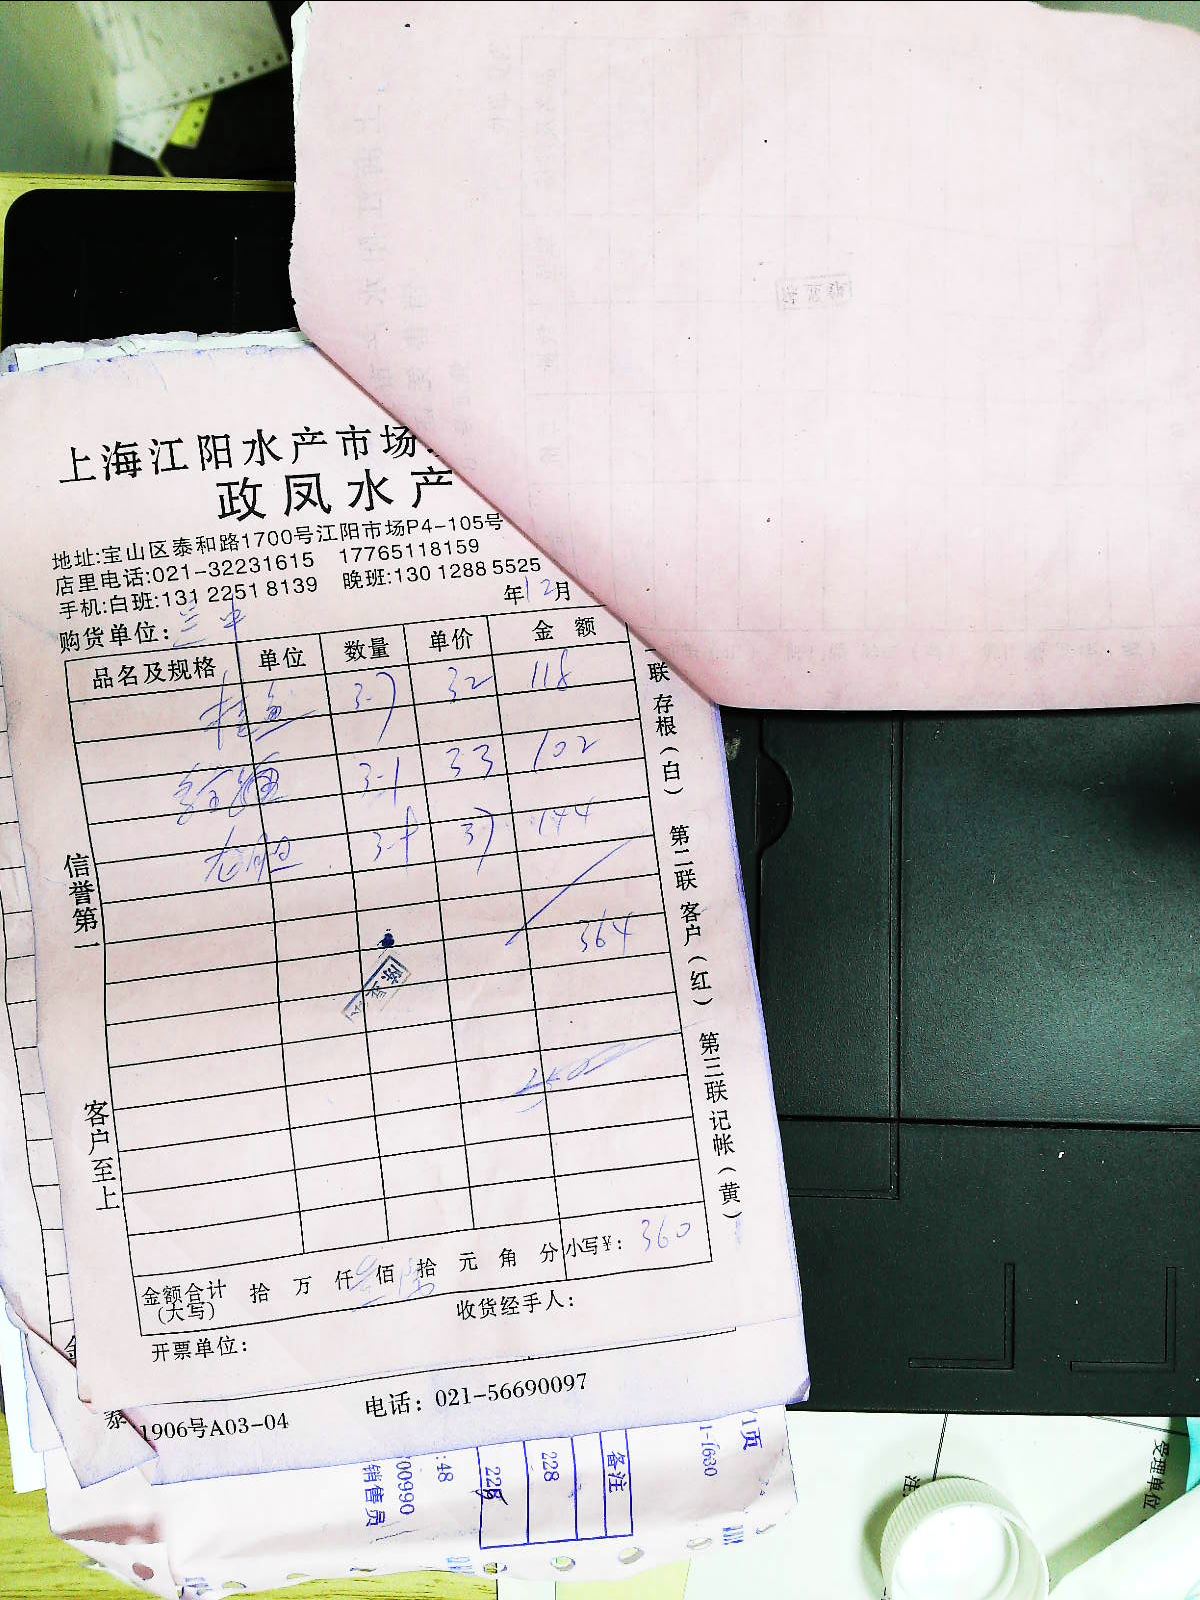 上海江阳水产市场
政凤水产
地址:宝山区泰和路1700号江阳市场P4-105号
店里电话:021-32231615 17765118159
手机:白班:131 2251 8139 晚班:130 1288 5525
年12月
购货单位:兰中
品名及规格 单位 数量 单价 金额
桂鱼 3-7 32 118
3-1 33 102
37 144
364
信誉第一
客户至上
联存根(白) 第二联客户(红) 第三联记帐(黄)
金额合计(大写) 拾 万 仟 佰 拾 元 角 分 小写¥: 360
收货经手人:
开票单位:
泰 1906号A03-04 电话: 021-56690097
备注
228
228
:48
00990
销售员
1-1630
1页
受理单位
注